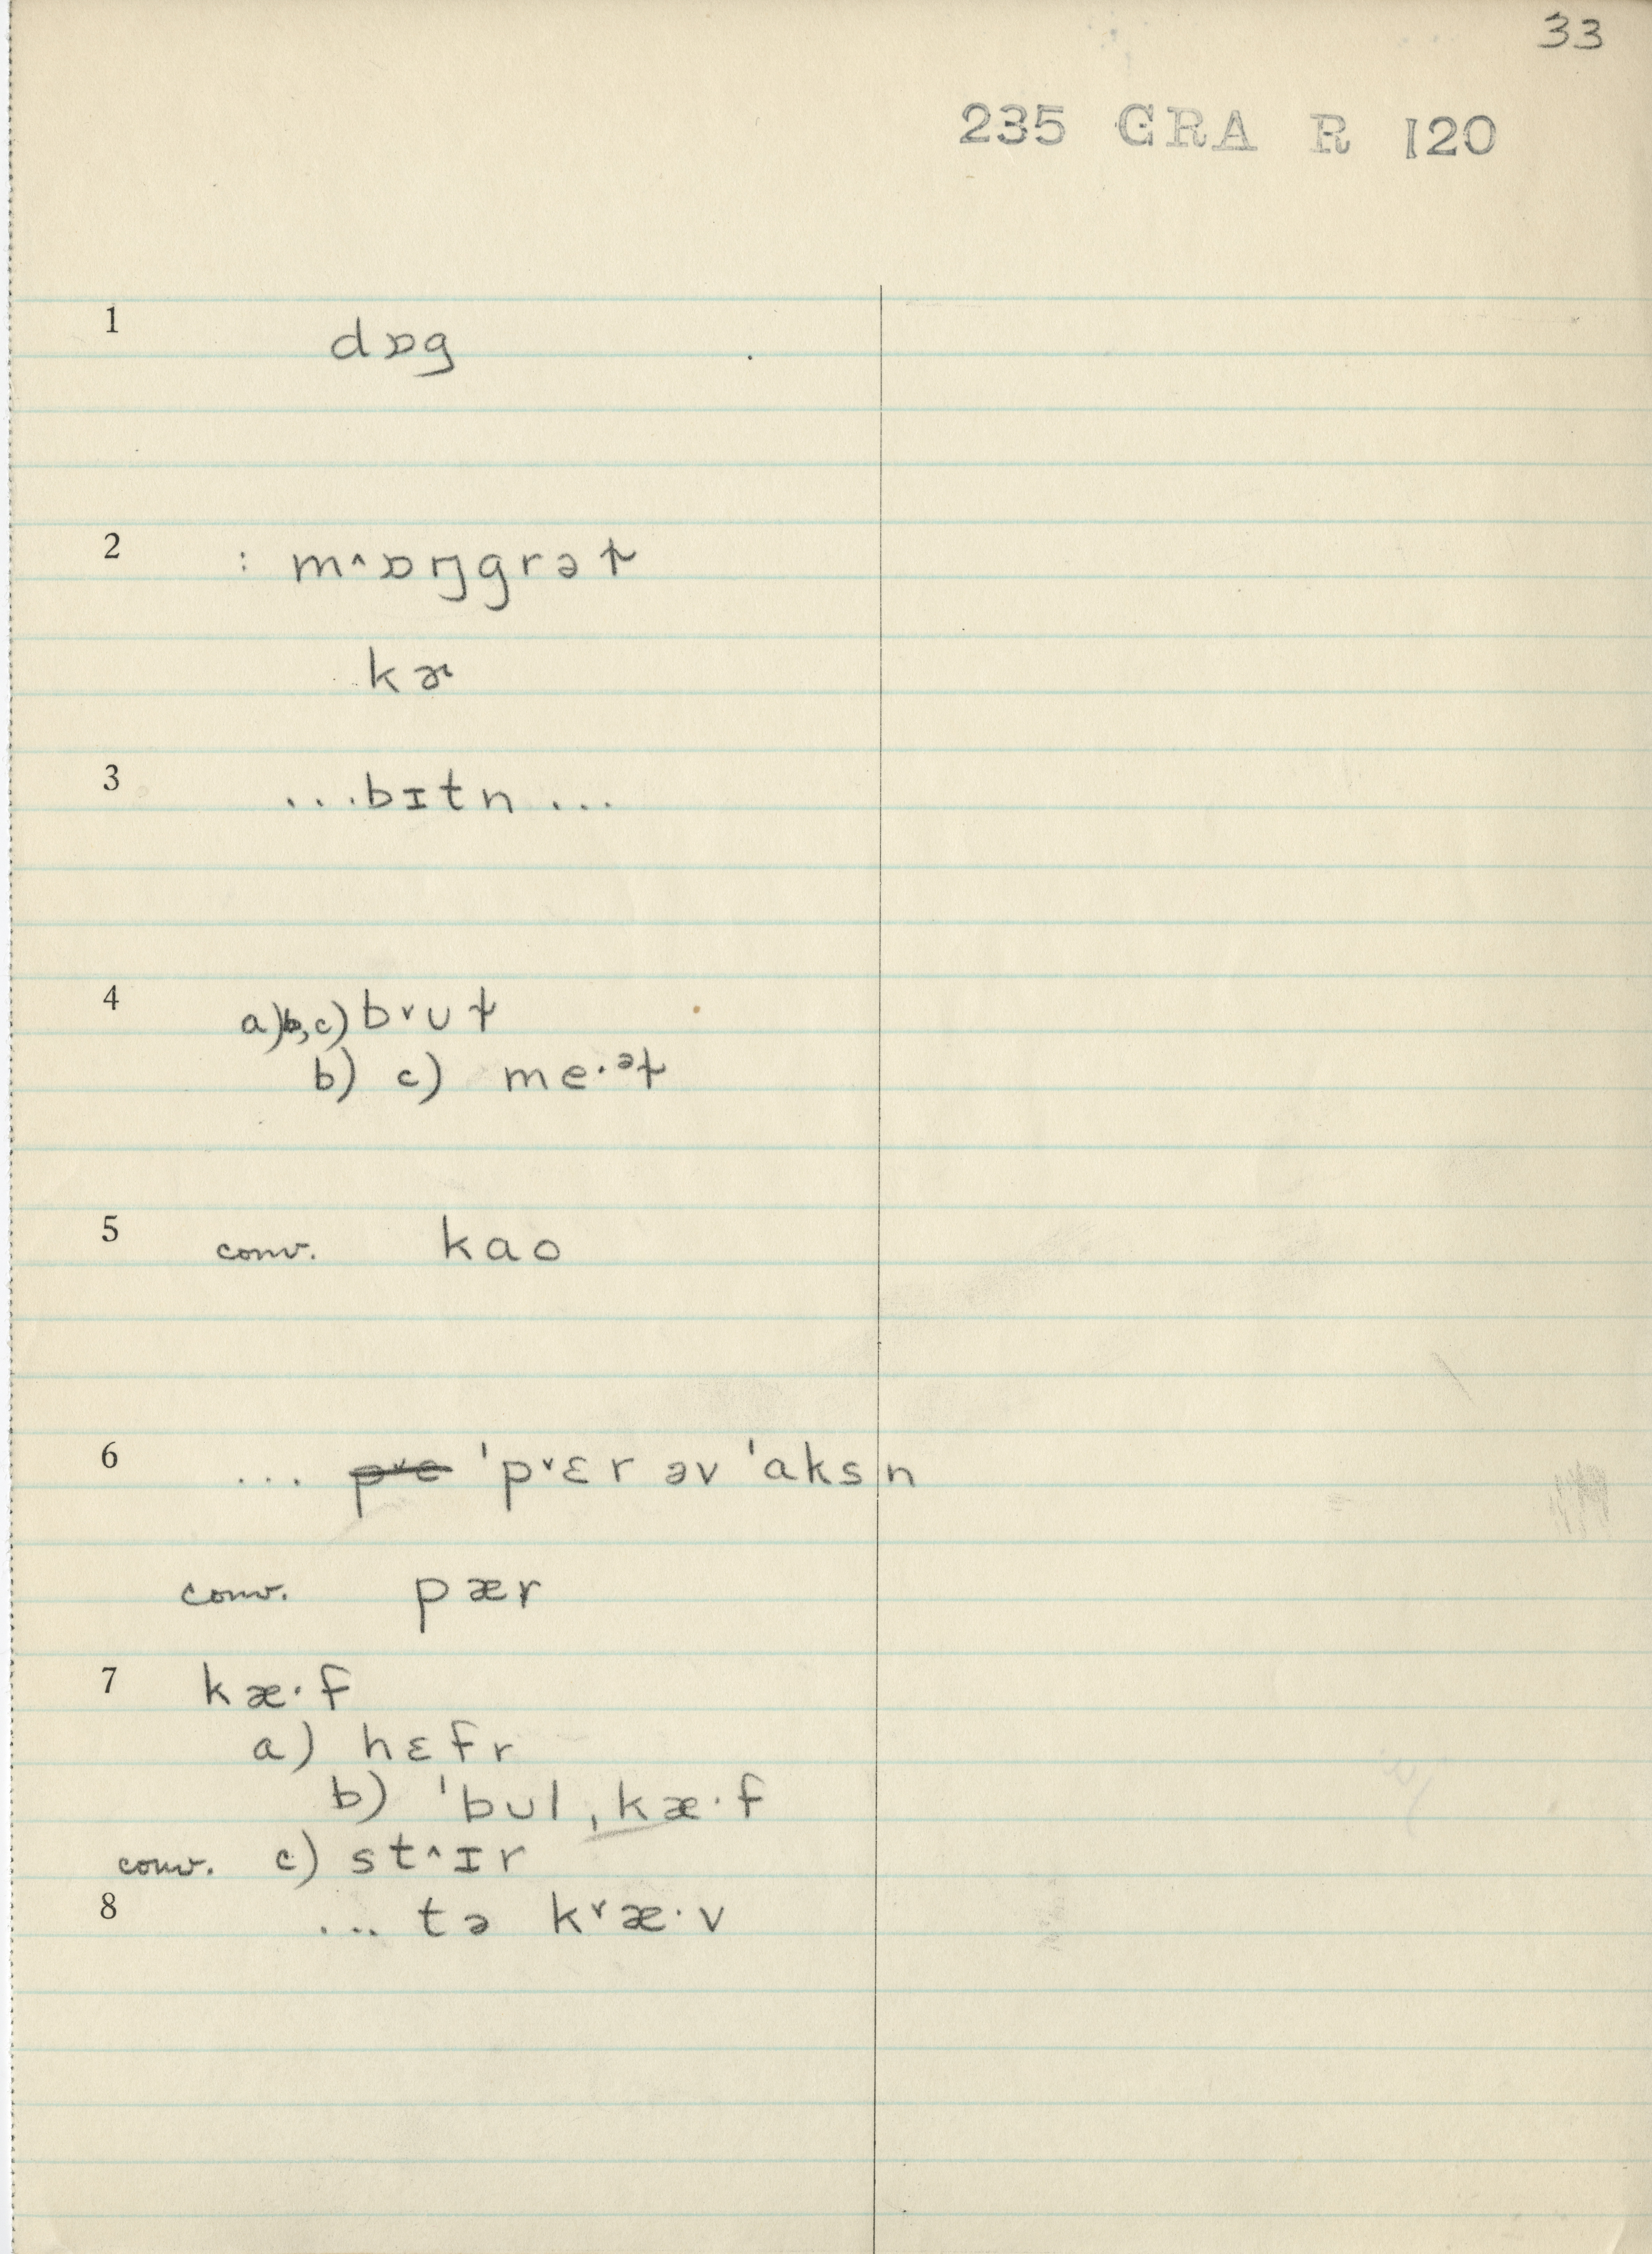 33
235 GRA R 120
1 dɒg
2 : m^ɒŋgrəɫ
kɚ
3 ...bɪtn...
4 a)b,c) b˅uɫ
b) c) me·ᵊɫ
5 conv. kao
6 ... p˅ɛ 'p˅ɛr əv 'aksn
conv. pær
7 kæ·f
a) hɛfr
b) 'bul ˌkæ·f
conv. c) st^ɪr
8 ... tə k˅æ·v